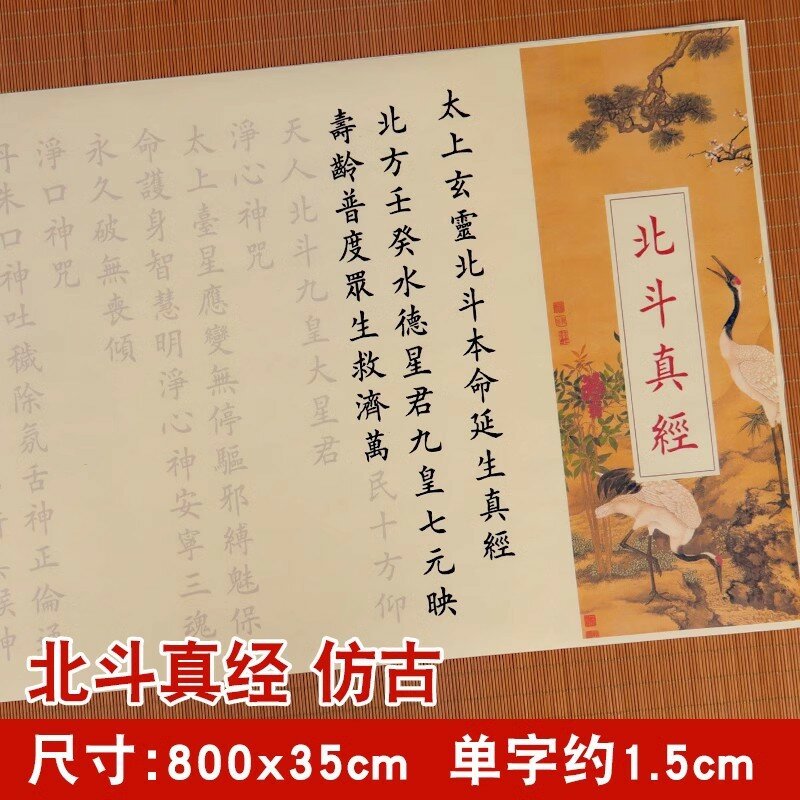 北斗真經
太上玄靈北斗本命延生真經
北方壬癸水德星君九皇七元映
壽齡普度眾生救濟萬民十方仰
天人北斗九皇大星君
淨心神咒
太上臺星應變無停驅邪縛魅保
命護身智慧明淨心神安寧三魂
永久破無喪傾
淨口神咒
丹朱口神吐穢除氛舌神正倫通
神
北斗真经 仿古
尺寸:800x35cm 单字约1.5cm